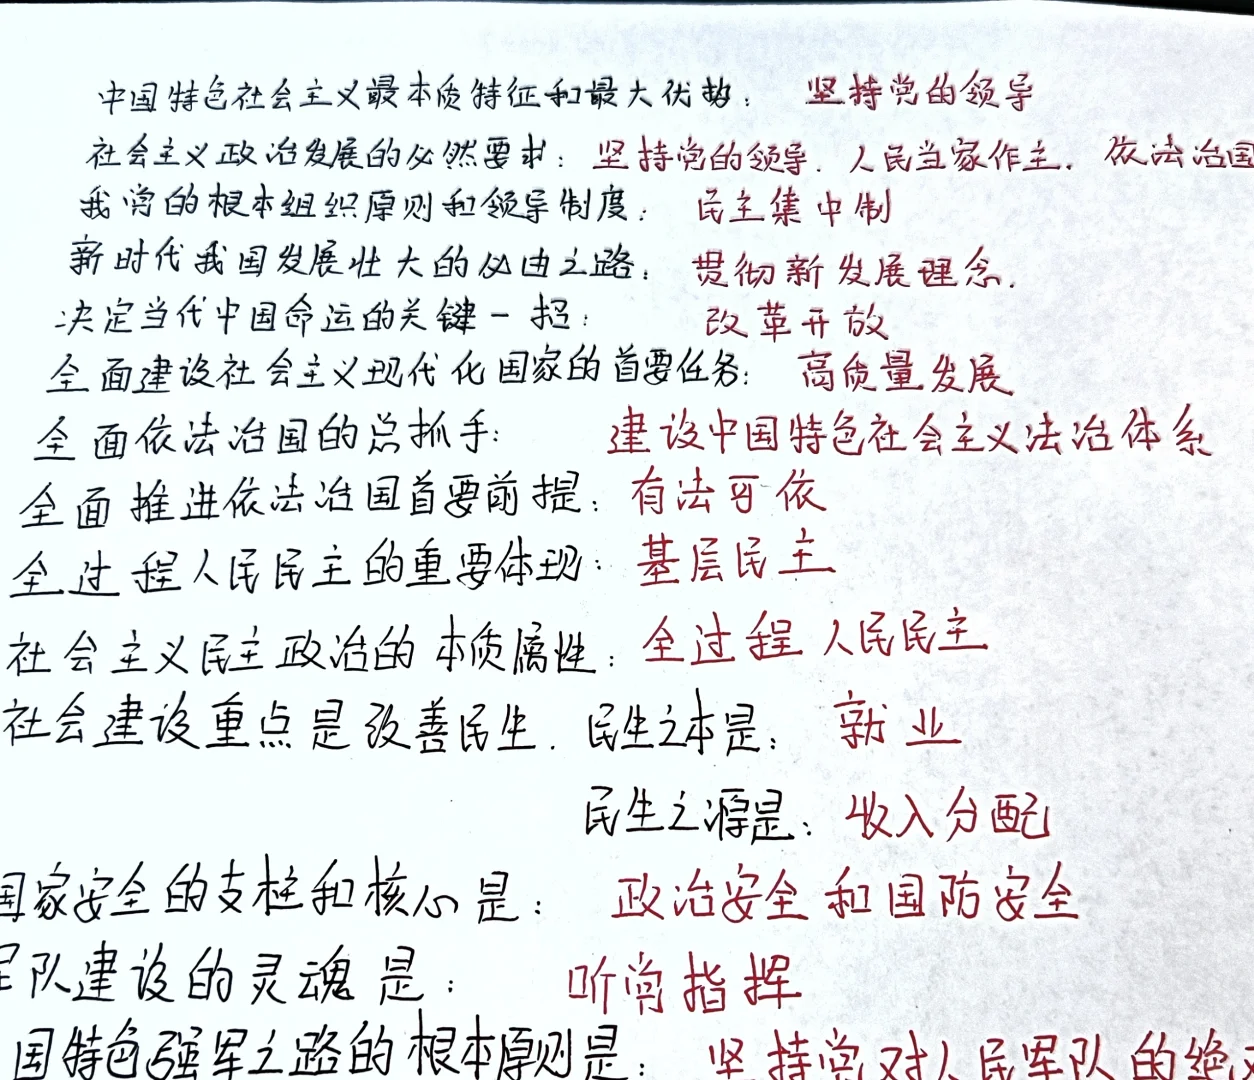 中国特色社会主义最本质特征和最大优势： 坚持党的领导
社会主义政治发展的必然要求：坚持党的领导．人民当家作主．依法治国
我党的根本组织原则和领导制度： 民主集中制
新时代我国发展壮大的必由之路： 贯彻新发展理念．
决定当代中国命运的关键一招： 改革开放
全面建设社会主义现代化国家的首要任务： 高质量发展
全面依法治国的总抓手： 建设中国特色社会主义法治体系
全面推进依法治国首要前提：有法可依
全过程人民民主的重要体现：基层民主
社会主义民主政治的本质属性：全过程人民民主
社会建设重点是改善民生．民生之本是： 就业
民生之源是：收入分配
国家安全的支柱和核心是： 政治安全和国防安全
军队建设的灵魂是： 听党指挥
国特色强军之路的根本原则是： 坚持党对人民军队的绝对